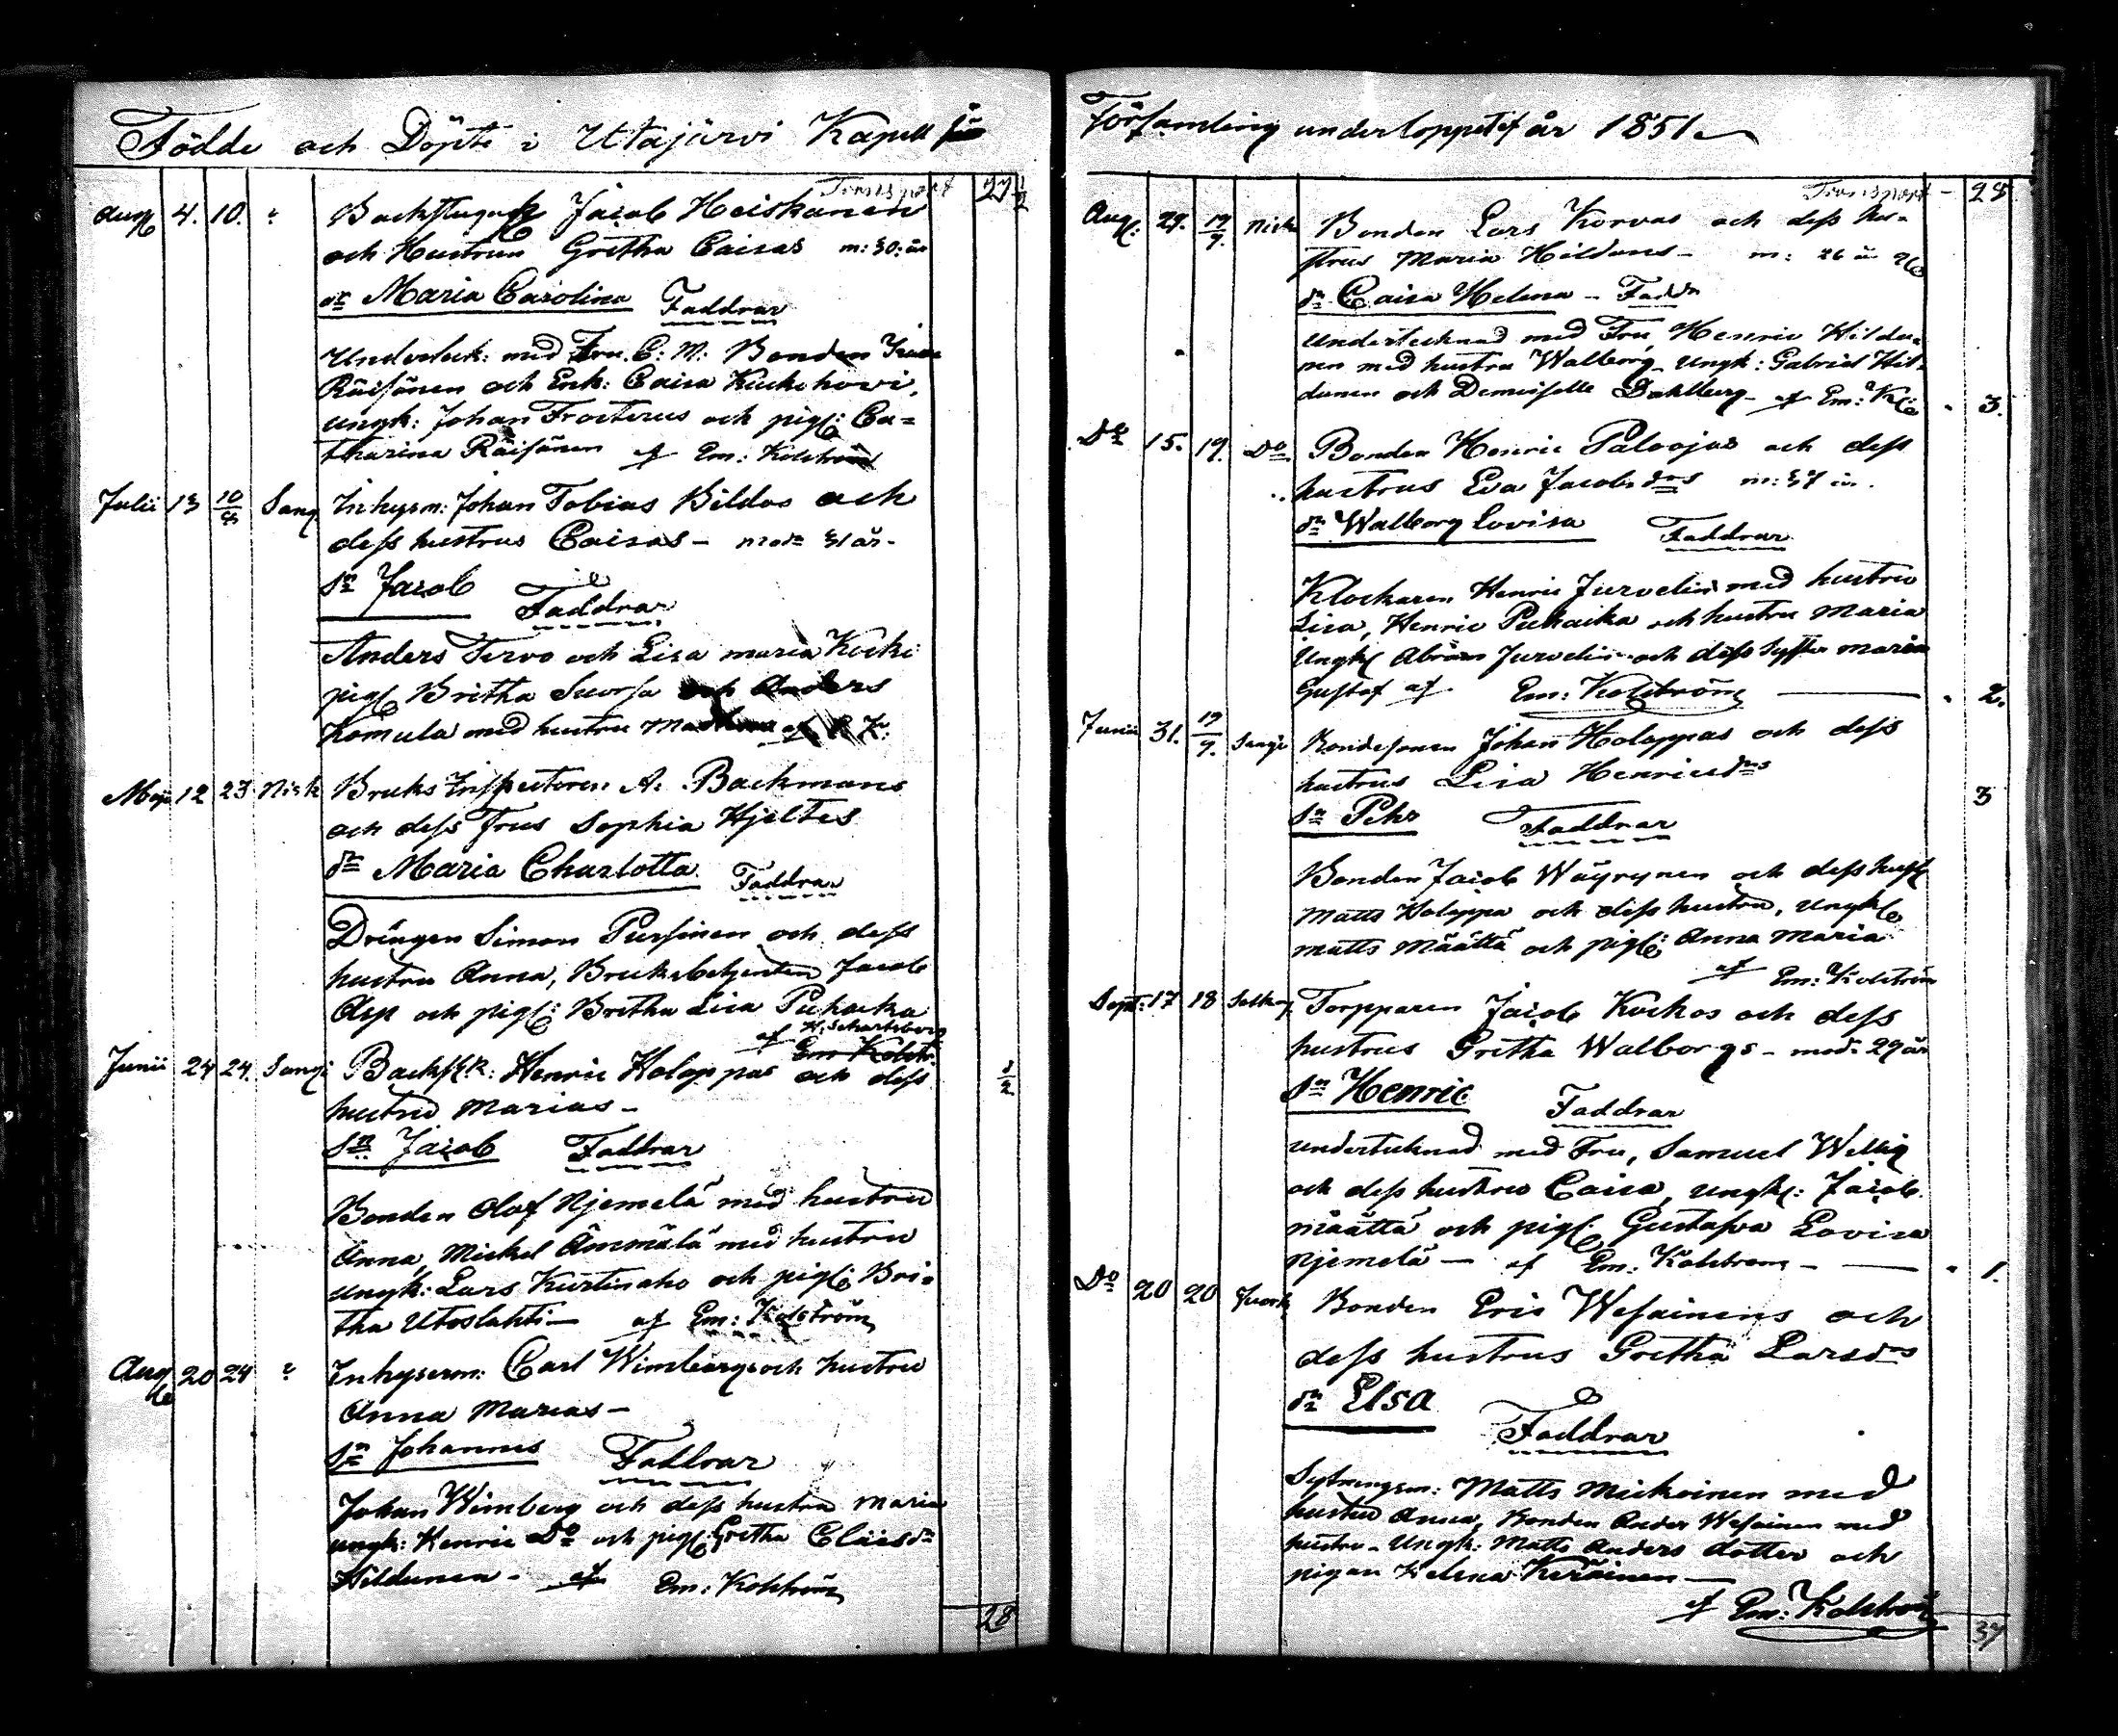 Födde och Döpte i Utajärvi Kapell
Transport 27 1/2
Aug 4. 10. Jacob Heiskanen
och Hustrun Gretha Caisas m: 30: år
dr Maria Carolina Faddrar
Underteck: med Fru C: M: Bonden
Räisänen och Enk: Caisa
ungk: Johan Frosterus och pig: Ca=
tharina Räisänen af Em: Kolström
Julii 13 10/8 Sang. Inhysm: Johan Tobias Bildos och
dess hustrus Caisas - mod: 31 år -
sn Jacob
Faddrar
Anders Tervo och Lisa maria Kocki
pig Britha Suorsa och Anders
Komula med hustru
Maji 12 23 Nisk Bruks Inspectoren A. Backmans
och dess Frus Sophia Hjeltes
dr Maria Charlotta Faddrar
Drängen Simon Pursinen och dess
hustru Anna, Bruksbetjenten Jacob
Asp och pig: Britha Lisa Puhacka
af
Em Kolstr
Junii 24 24. Sangi Henric Holappas och dess 1/2
hustrus Marias -
sn Jacob Faddrar
Bonden Olof Njemelä med hustru
Anna, Mickel Ämmälä med hustru
ungk: Lars Kurtinaho och pig: Bri=
tha Utoslahti - af Em: Kolström
Aug 20 24 Inhysesm: Carl Wimbergs och hustru
Anna Marias -
sn Johannes Faddrar
Johan Wimberg och dess hustru Maria
ungk: Henric Do och pig: Gretha Claesdr
Hildunen - af Em: Kolström
28
Församling under loppet af år 1851.
Transport - 28
Aug: 29. 19/9. Nisk Bonden Lars Korvas och dess hu-
strus Maria Hildans - m: 26 år
dr Caisa Helena - Faddr
undertecknad med Fru, Henric Hildu-
nen med hustru Walborg, ungk: Gabriel Hil-
dunen och Demoiselle Dahlberg - af Em: K. 3.
Do 15. 19. Do Bonden Henric Paloojas och dess
hustrus Eva Jacobsdrs m: 37 år.
dr Walborg Lovisa Faddrar
Klockaren Henric Jurvelin med hustru
Lisa, Henric Puhacka och hustru Maria
Ungk Abram Jurvelin och dess syster maria
Gustaf af Em: Kolström 2.
Junii 31. 19/9. Sangi Bondesonen Johan Holappas och dess
hustrus Lisa Henricsdrs
3
sn Pehr Faddrar
Bonden Jacob Wäyrynen och dess hust
Matts Holappa och dess hustru, ungk
matts Määttä och pig: Anna Maria
af Em: Kolström
Sept: 17 18 Torpparen Jacob Kockos och dess
hustrus Gretha Walborgs - mod: 29 år
sn Henric
Faddrar
undertecknad med Fru, Samuel Wellig
och dess hustru Caisa, ungk: Jacob
määttä och pig: Gustafva Lovisa
Njemelä - af Em: Kolström - 1.
Do 20 20 Juork Bonden Eris Wesainens och
dess hustrus Gretha Larsdrs
dr Elsa
Faddrar
Sytningsm: Matts Mickoinen med
hustru Anna, Bonden Ander Wesainen med
hustru - Ungk: Matts Anders dotter och
pigan Helena Keräinen -
af Em: Kolström
37